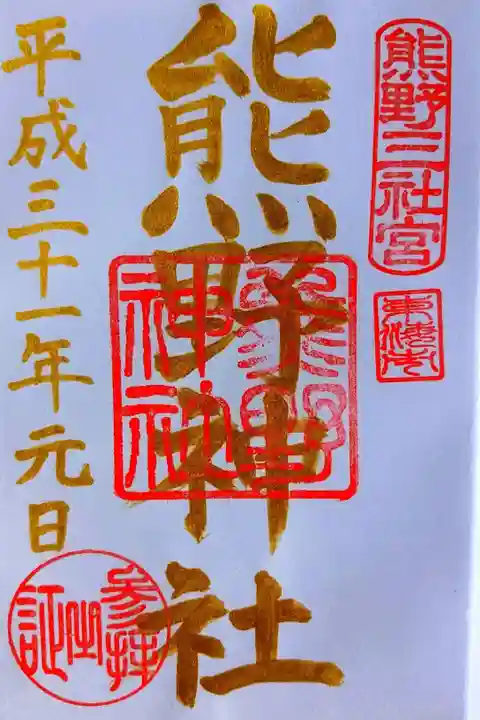 熊野三社宮
熊野神社
熊野
神社
平成三十一年元日
参拝
之証